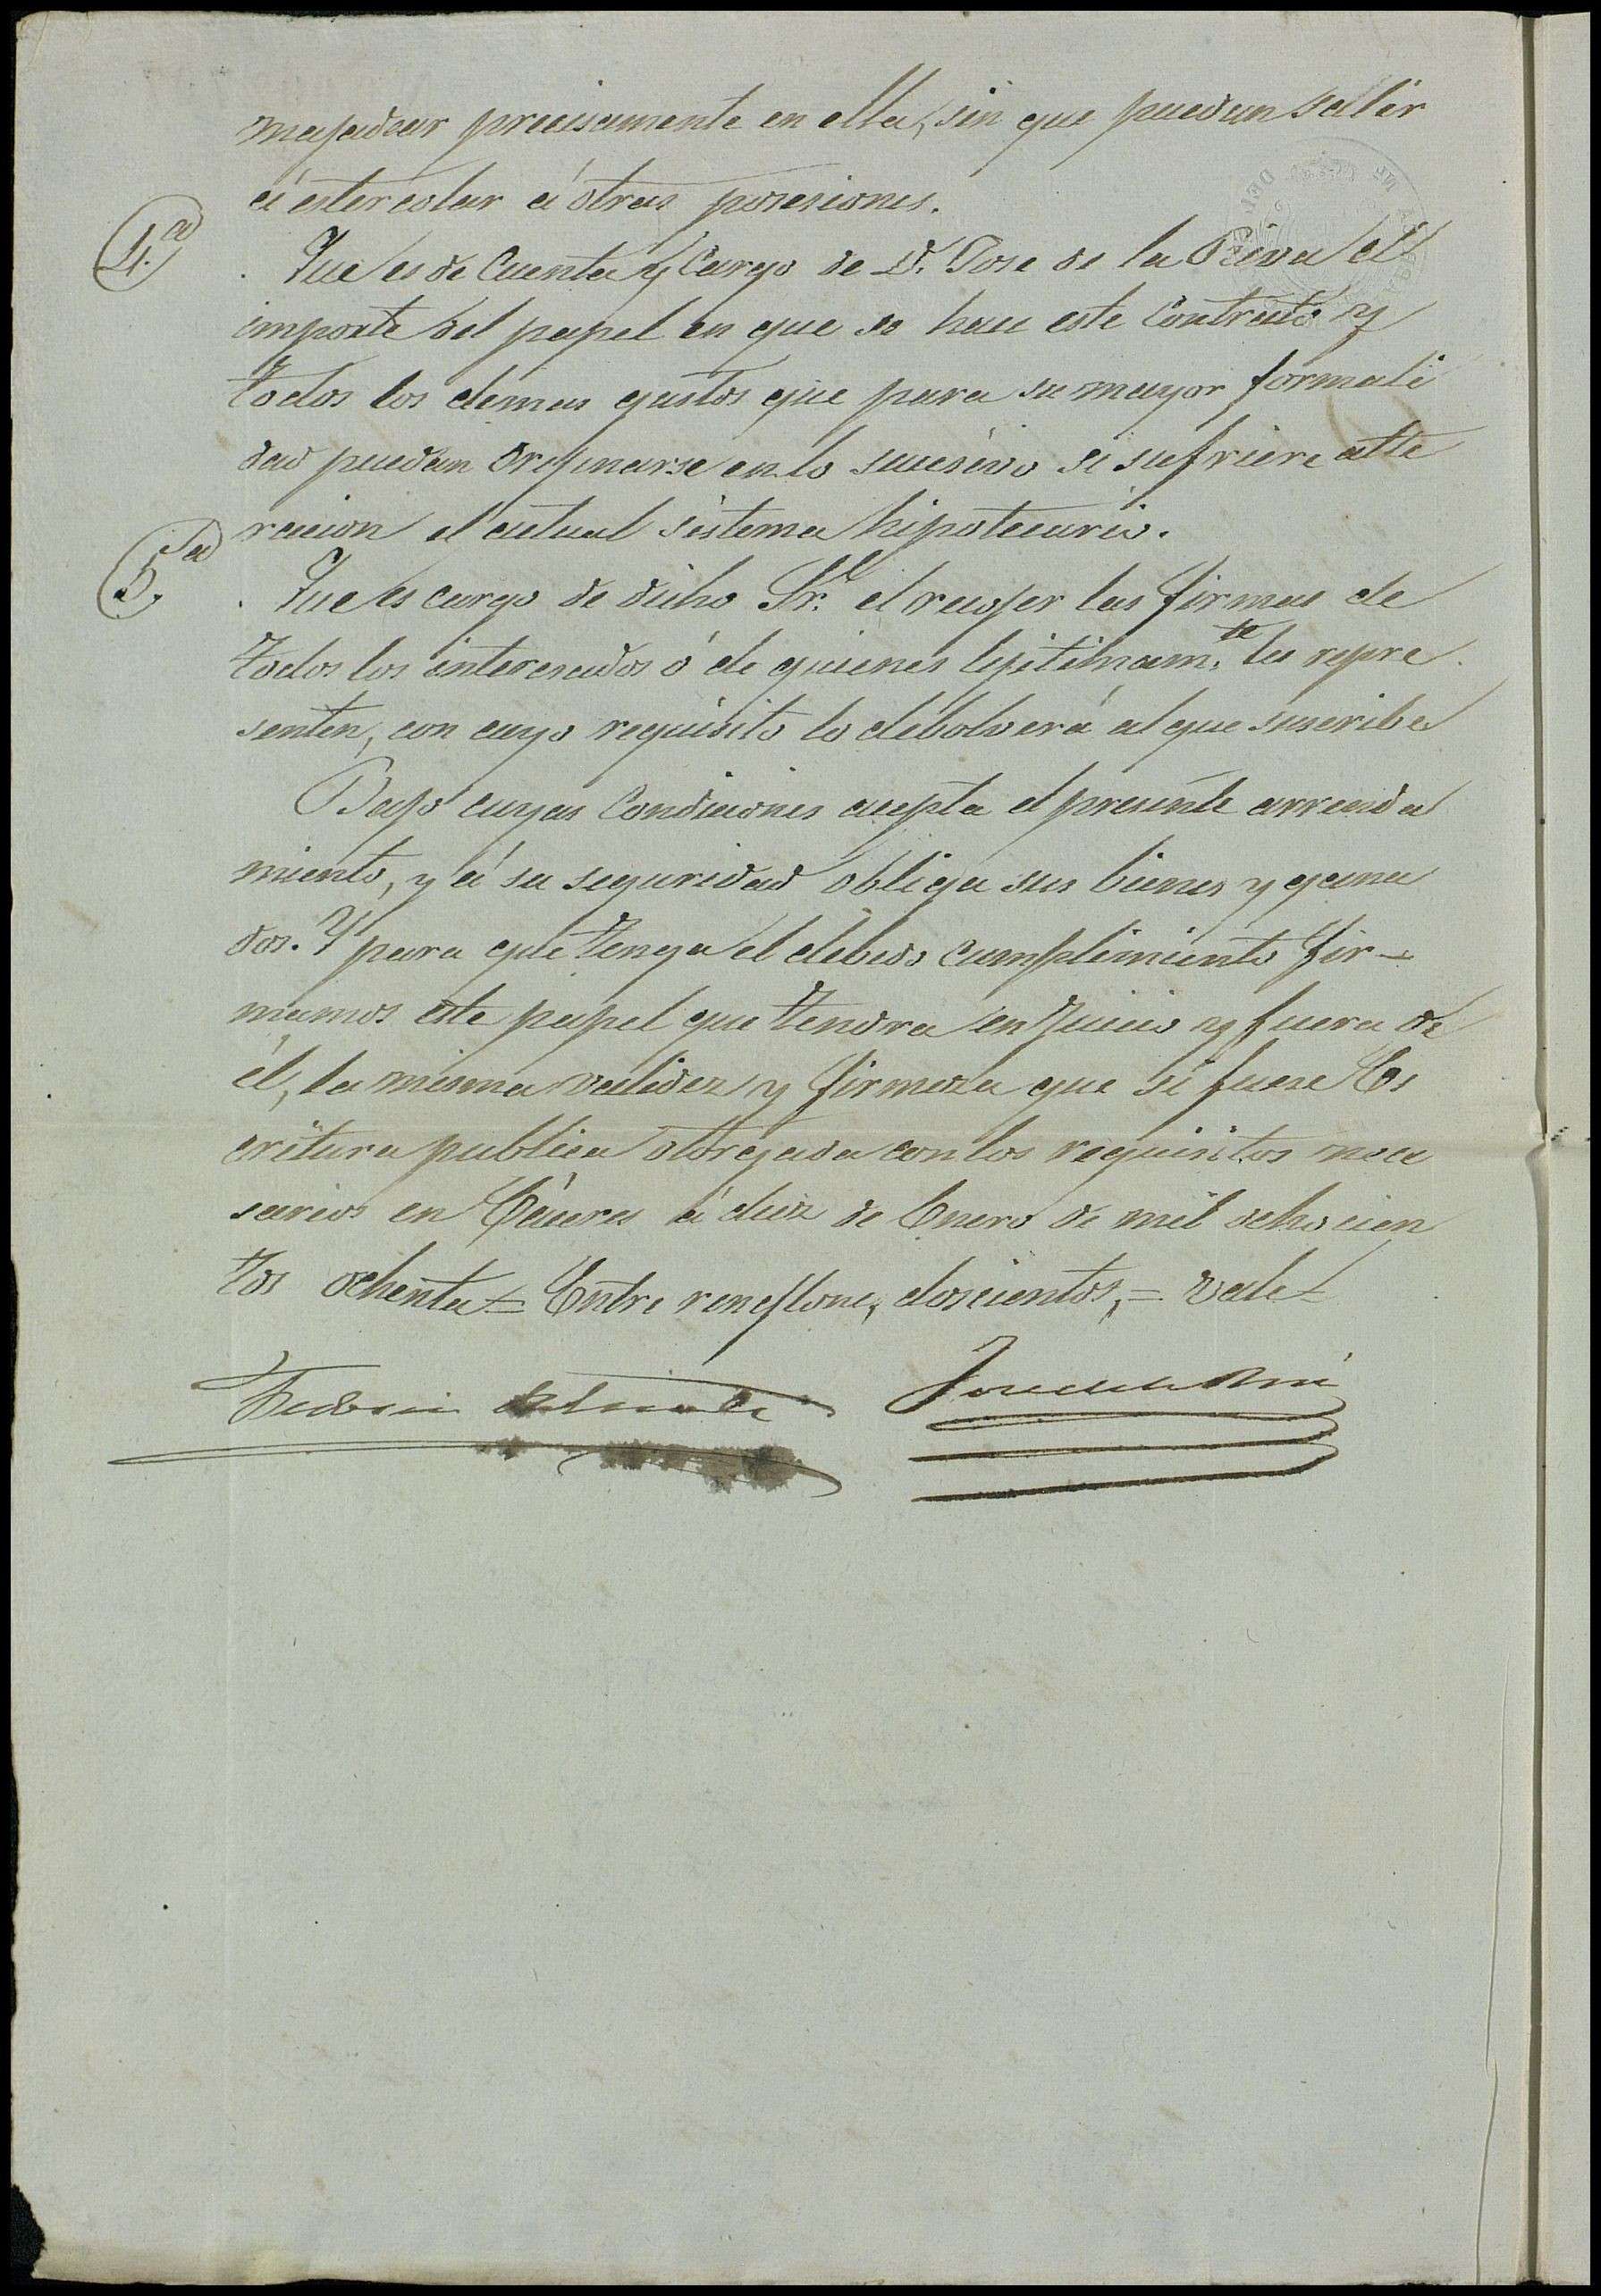 majadear precisamente en ella, sin que puedan salir
á estercolar á otras posesiones.
4.ª
Que es de Cuenta y Cargo de D. Jose de la Riva el
importe del papel en que se hace este Contrato y
todos los demas gastos que para su mayor formali
dad puedan orijinarse en lo sucesivo si sufriere alte
racion el actual sistema hipotecario.
5.ª
Que es cargo de dicho Sr. el recojer las firmas de
todos los interesados ó de quienes lejitimam.te les repre
senten, con cuyo requisito lo debolverá al que suscribe
Bajo cuyas Condiciones acepta el presente arrenda
miento, y á su seguridad obliga sus bienes y gana
dos. Y para que tenga el debido cumplimiento fir-
mamos este papel que tendra en Juicio y fuera de
él, la misma validez y firmeza que si fuese Es
critura publica otorgada con los requisitos nece
sarios en Cáceres á diez de Enero de mil ochocien
tos ochenta = Entre renglone, doscientos, = vale =
Jose de la Riva